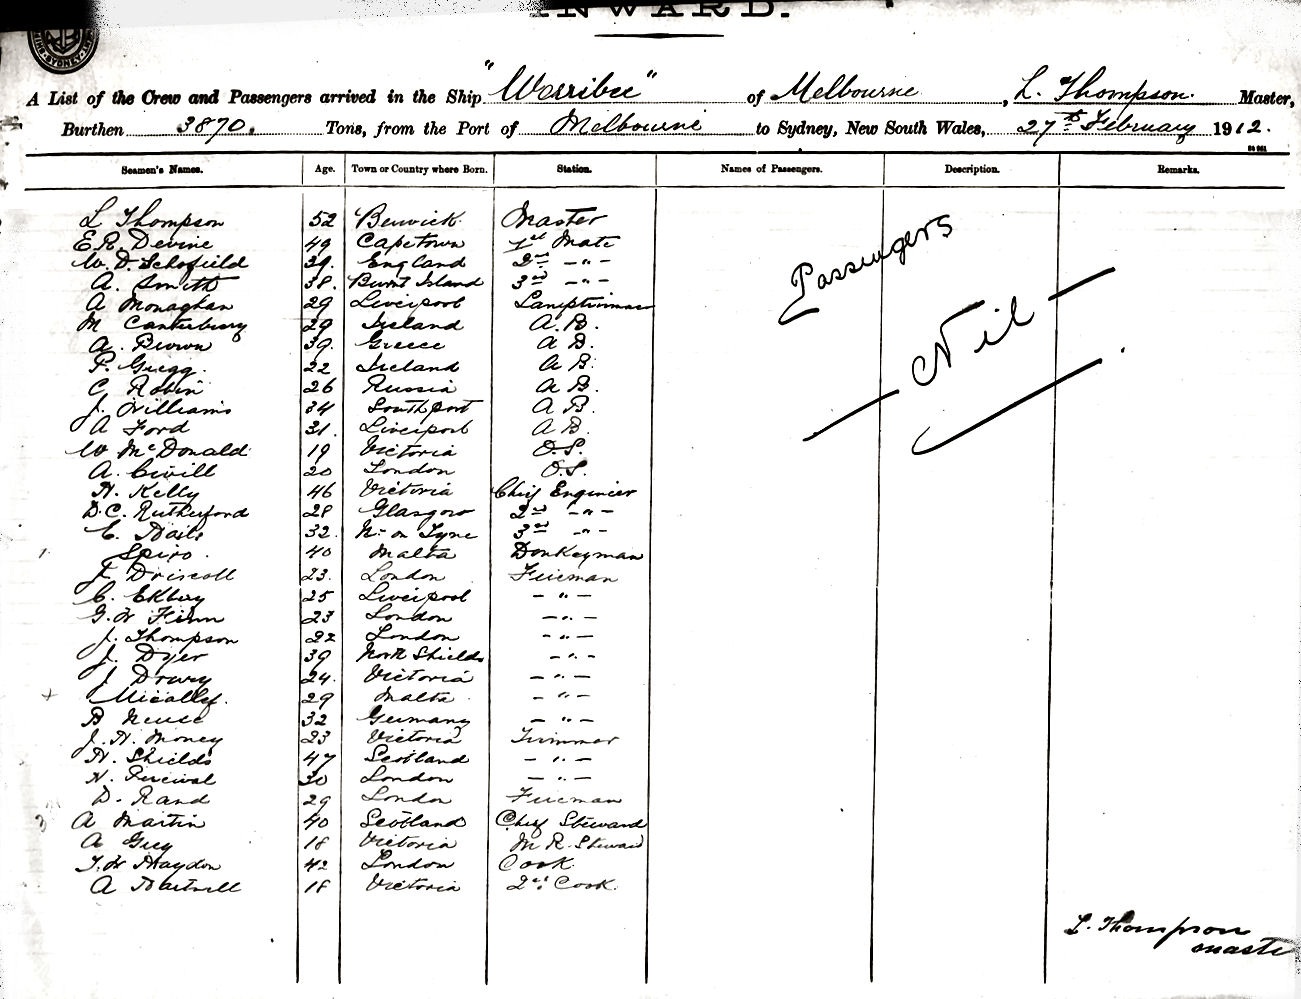 INWARD.
A List of the Crew and Passengers arrived in the Ship "Werribee" of Melbourne, L. Thompson. Master,
Burthen 3870. Tons, from the Port of Melbourne to Sydney, New South Wales, 27th February 1912.
Seamen's Names. Age. Town or Country where Born. Station. Names of Passengers. Description. Remarks.
L Thompson 52 Berwick Master
E.R. Devine 49 Capetown 1st Mate
W. D. Schofield 39. England 2nd - " -
A. Smith 38. Burnt Island 3rd - " -
A Monaghan 29 Liverpool Lamptrimmer
M Canterbury 29 Ireland A. B.
A. Brown 39. Greece A B.
P. Gregg. 22 Ireland A B.
C Robin 26 Russia A B.
J. Williams 34 Southport A B.
A Ford 31. Liverpool A B.
W McDonald 19 Victoria O.S.
A. Civill 20 London O.S.
H. Kelly 46 Victoria Chief Engineer
D.C. Rutherford 28 Glasgow 2nd - " -
E. 32. N- on Tyne 3rd - " -
Spiro. 40 Malta Donkeyman
F Driscoll 23. London Fireman
C. Ekbery 25 Liverpool - " -
G.W Finn 23 London - " -
J. Thompson 22 London - " -
J. Dyer 39 North Shields - " -
J Drury 24. Victoria - " -
Micallef. 29 Malta - " -
B Neuse 32 Germany - " -
J. H. Money 23 Victoria Trimmer
H. Shields 47 Scotland - " -
H. Percival 30 London - " -
D. Rand 29 London Fireman
A Martin 40 Scotland Chief Steward
A Guy 18 Victoria M R. Steward
T. W Haydon 42 London Cook
A Hartnell 18 Victoria 2nd Cook.
Passengers
- Nil -
L. Thompson
Master